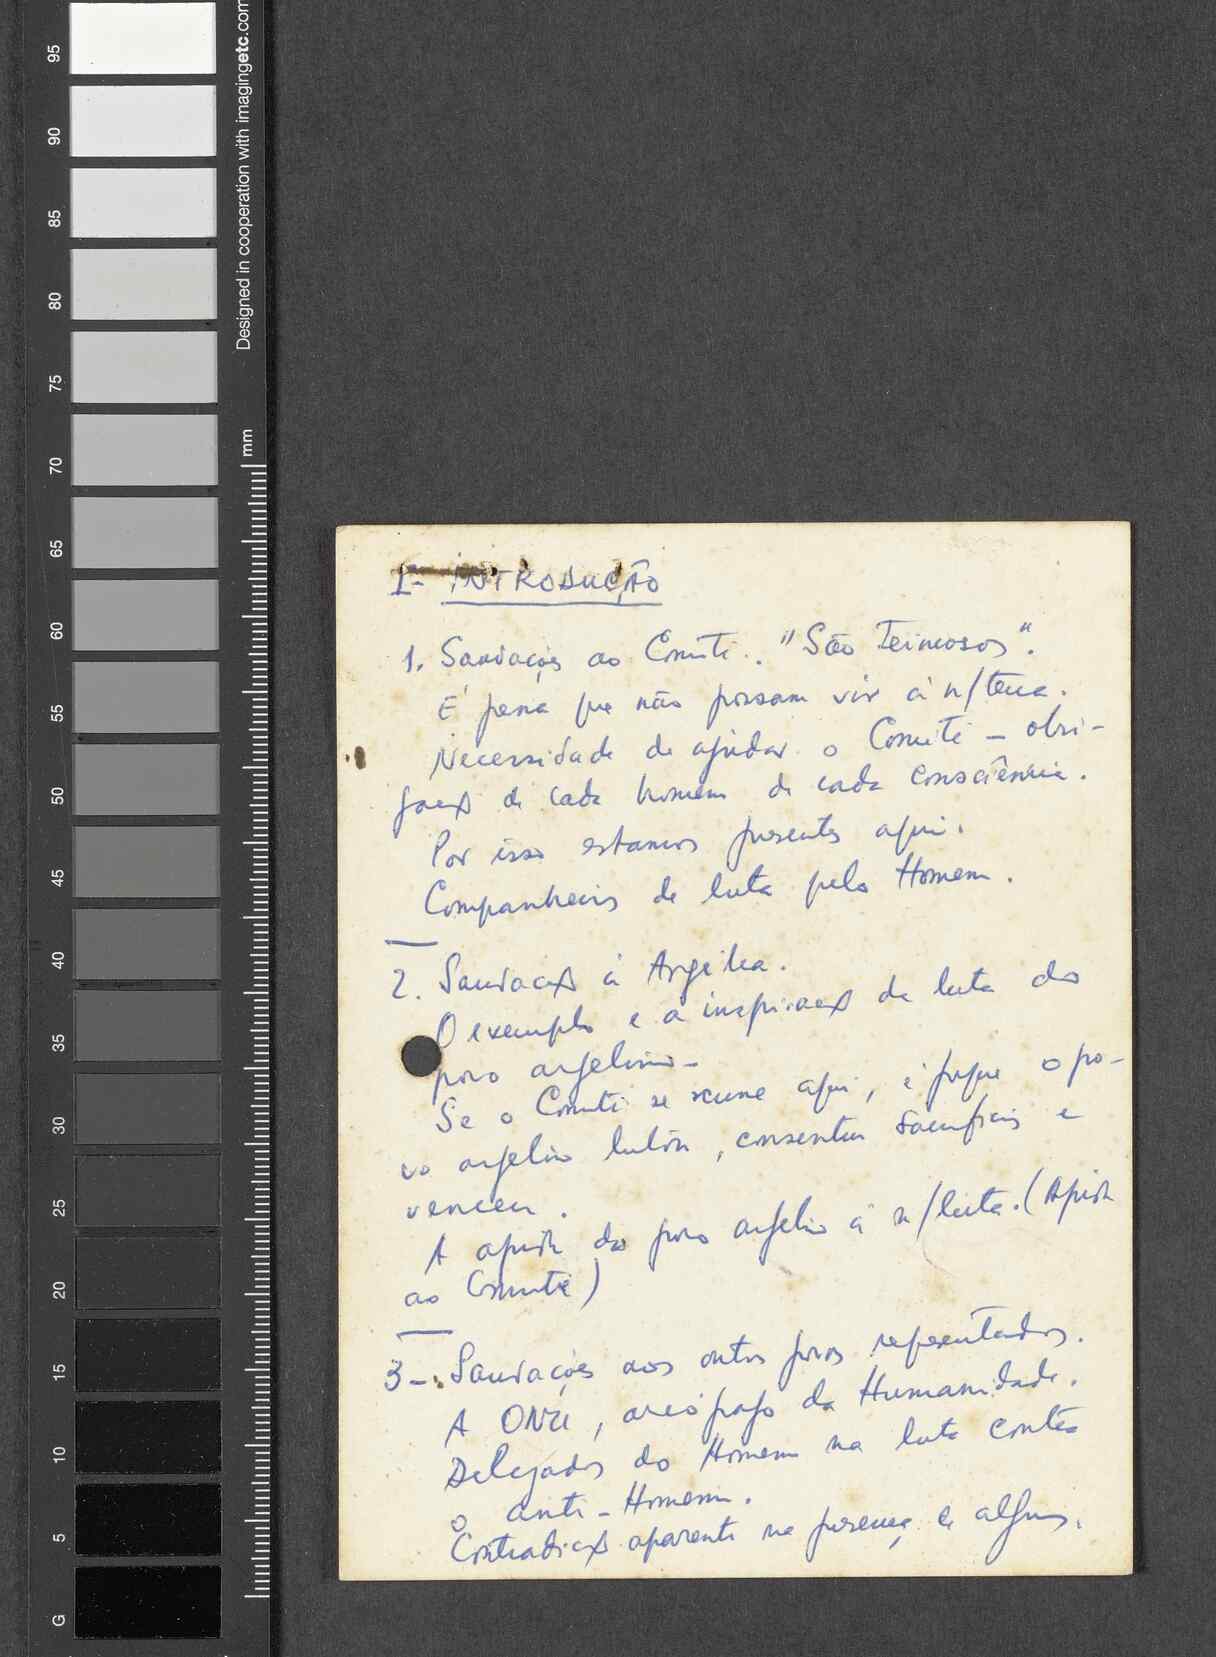 95
90
85
80
75
70
65
60
55
50
45
40
35
30
25
20
15
10
5
G
Designed in cooperation with imagingetc.com
mm
I- INTRODUÇÃO
1. Saudações ao Comité. "São Teimosos".
É pena que não possam vir à n/terra.
Necessidade de ajudar o Comité – obri-
gação de cada homem de cada consciência.
Por isso estamos presentes aqui.
Companheiros de luta pelo Homem.
2. Saudação à Argélia.
O exemplo e a inspiração da luta do
povo argelino –
Se o Comité se reune aqui, é porque o po-
vo argelino lutou, consentiu sacrifícios e
venceu.
A ajuda do povo argelino à n/luta. (Ajuda
ao Comité)
3 – Saudações aos outros povos representados.
A ONU, areópago da Humanidade.
Delegados do Homem na luta contra
o anti-Homem.
Contradição aparente na presença de alguns.